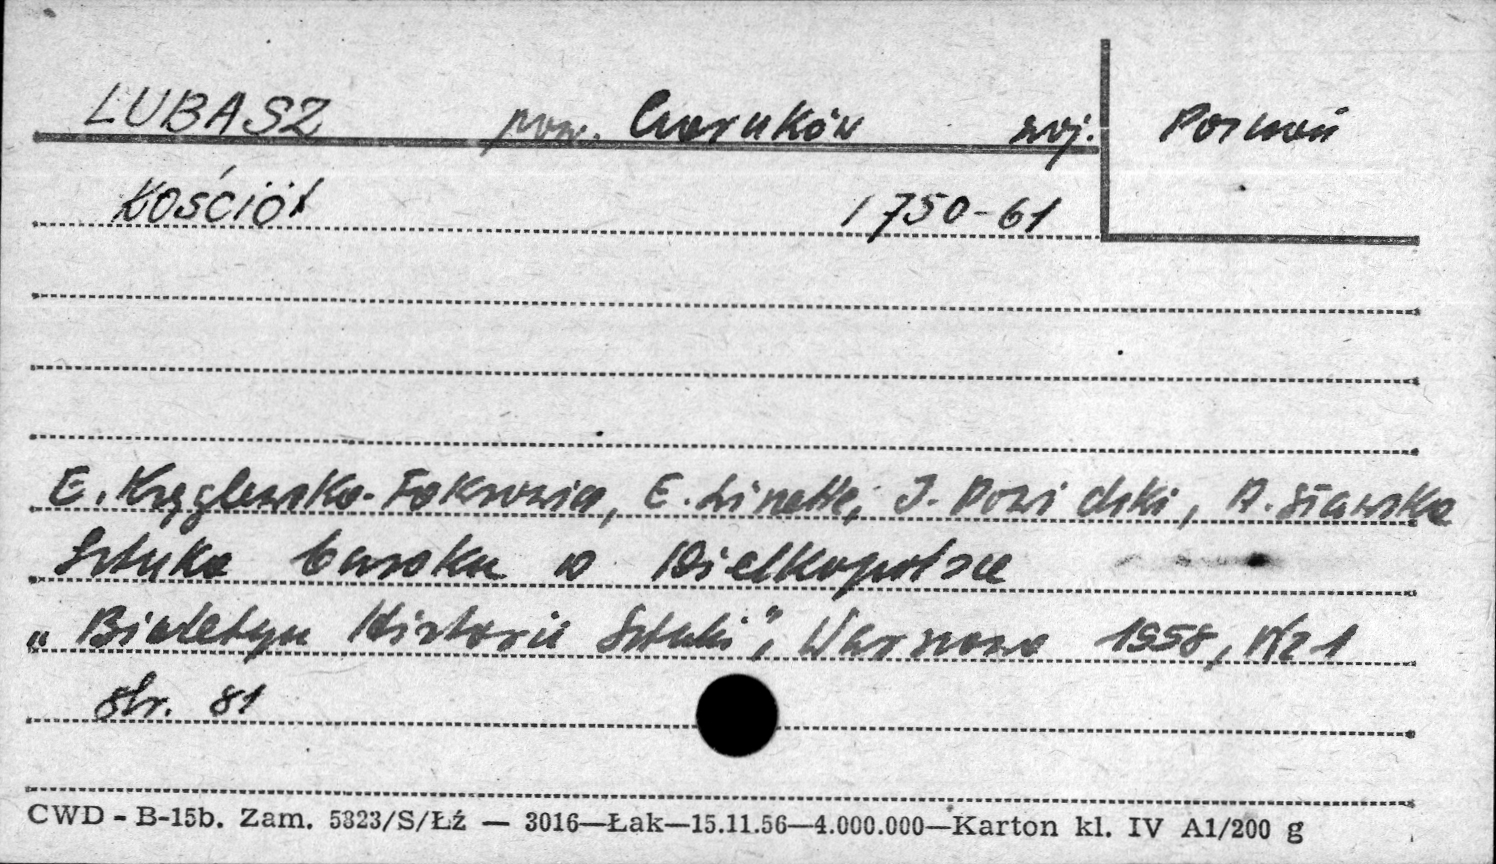 LUBASZ pow. Czarnków woj. Poznań
KOŚCIÓŁ 1750-61
E. Kręglewska-Foksowicz, E. Linette, J. Powidzki, A. Sławska
Sztuka baroku w Wielkopolsce
„Biuletyn Historii Sztuki”, Warszawa 1958, Nr 1
str. 81
CWD - B-15b. Zam. 5323/S/Łź — 3016—Łak—15.11.56—4.000.000—Karton kl. IV A1/200 g